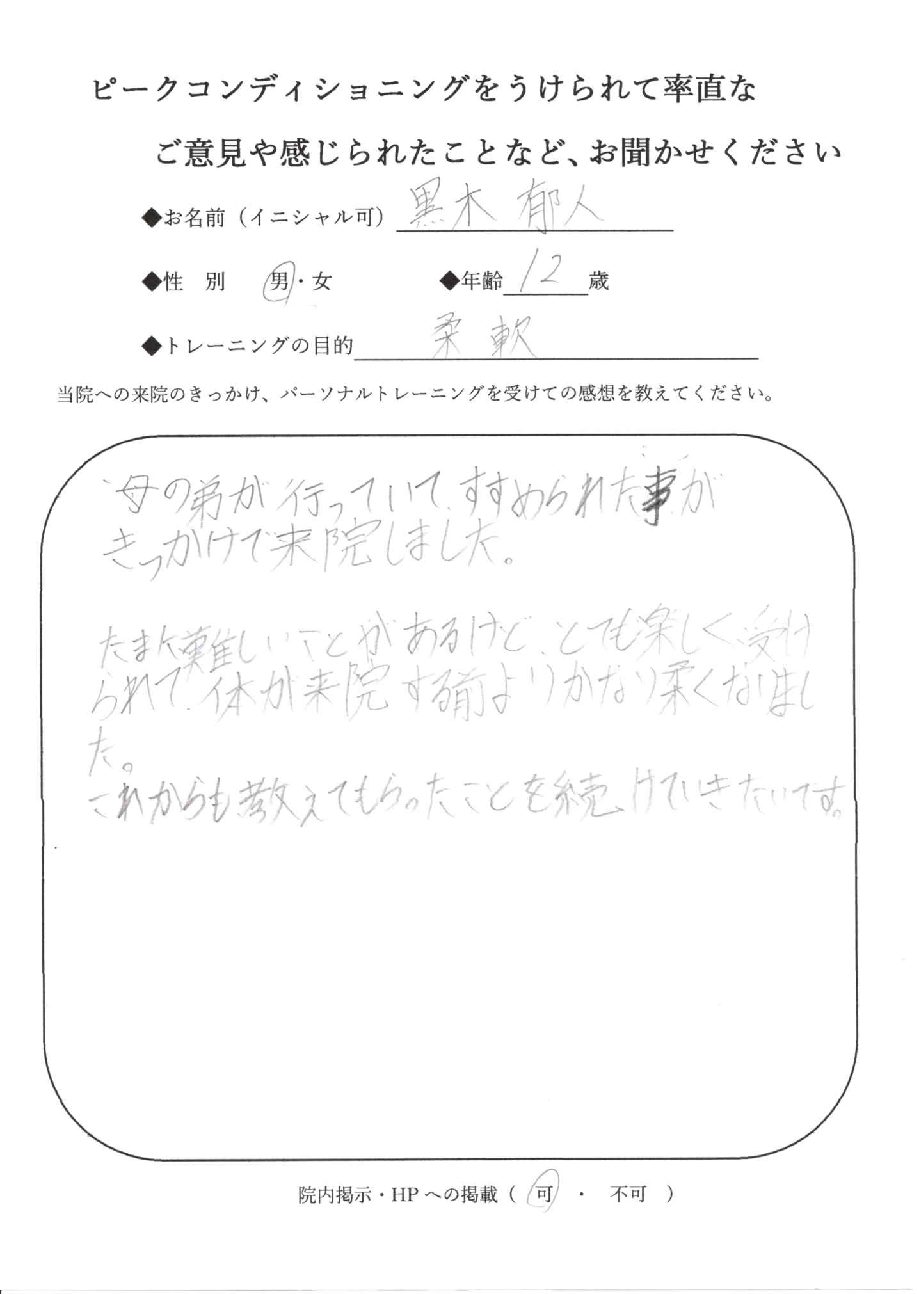 ピークコンディショニングをうけられて率直な
ご意見や感じられたことなど、お聞かせください
◆お名前（イニシャル可） 黒木 郁人
◆性　別　男・女　◆年齢 12 歳
◆トレーニングの目的 柔軟
当院への来院のきっかけ、パーソナルトレーニングを受けての感想を教えてください。
母の弟が行っていて、すすめられた事が
きっかけで来院しました。
たまに難しいことがあるけど、とても楽しく受け
られて、体が来院する前よりかなり柔くなりまし
た。
これからも教えてもらったことを続けていきたいです。
院内掲示・HPへの掲載（　可　・　不可　）